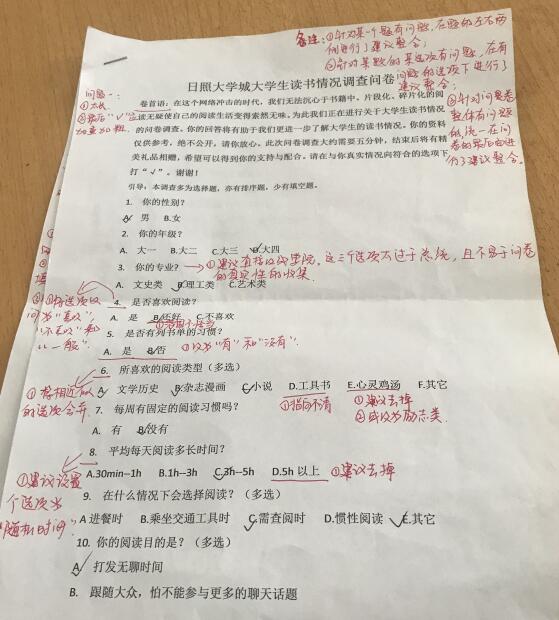 备注:①针对某一个题有问题,在题的左右两
侧进行了建议整合;
②针对某题的某选项有问题,在有
问题的选项下进行了
建议整合;
③针对问卷
整体有问题
的,统一在问
卷的最后面进
行了建议整合。
日照大学城大学生读书情况调查问卷
问题一:
①太长
②最后"√"
加重加粗
卷首语:在这个网络冲击的时代,我们无法沉心于书籍中,片段化、碎片化的阅
读无疑使自己的阅读生活变得索然无味。为此我们正在进行关于大学生读书情况
的问卷调查。你的回答将有助于我们更进一步了解大学生的读书情况。你的资料
仅供参考,绝不公开,请你放心。此次问卷调查大约需要五分钟,结束后将有精
美礼品相赠,希望可以得到你的支持与配合。请在与你真实情况向符合的选项下
打"√"。谢谢!
引导:本调查多为选择题,亦有排序题,少有填空题。
1. 你的性别?
A. 男 B.女
2. 你的年级?
A. 大一 B.大二 C.大三 D.大四
3. 你的专业? ①建议直接改成学院,这三个选项太过于笼统,且不易于问卷
的真实性的收集
A. 文史类 B.理工类 C.艺术类
4. 是否喜欢阅读?
A. 是 B.还好 C.不喜欢
将选项改
为"喜欢",
"不喜欢"和
"一般".
5. 是否有列书单的习惯?
A. 是 B.否 ①改为"有"和"没有".
6. 所喜欢的阅读类型(多选)
A. 文学历史 B.杂志漫画 C.小说 D.工具书 E.心灵鸡汤 F.其它
①将相近似
的选项合并.
①指向不清
①建议去掉
②或改为励志类.
7. 每周有固定的阅读习惯吗?
A. 有 B.没有
8. 平均每天阅读多长时间?
A.30min--1h B.1h--3h C.3h--5h D.5h 以上 ①建议去掉
①建议设置
个选项为
"随机时间".
9. 在什么情况下会选择阅读?(多选)
A 进餐时 B.乘坐交通工具时 C.需查阅时 D.惯性阅读 E.其它
10. 你的阅读目的是?(多选)
A. 打发无聊时间
B. 跟随大众,怕不能参与更多的聊天话题